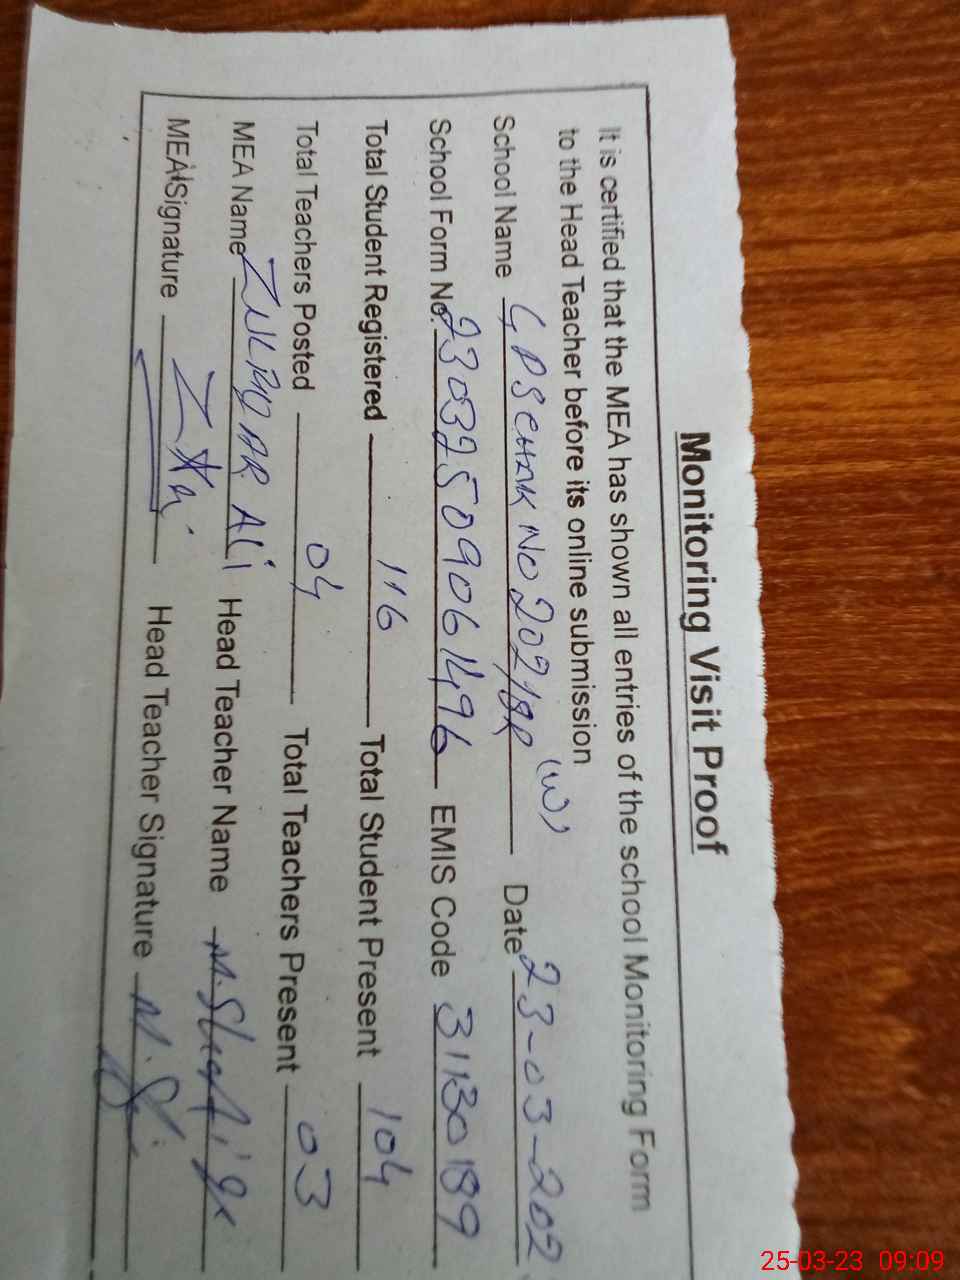 Monitoring Visit Proof
It is certified that the MEA has shown all entries of the school Monitoring Form
to the Head Teacher before its online submission
School Name GPS CHAK NO 202/9R (W) Date 23-03-202
School Form No. 23032509061496 EMIS Code 31130189
Total Student Registered 116 Total Student Present 104
Total Teachers Posted 04 Total Teachers Present 03
MEA Name ZULFIQAR ALI Head Teacher Name M.
MEA Signature Head Teacher Signature
25-03-23 09:09